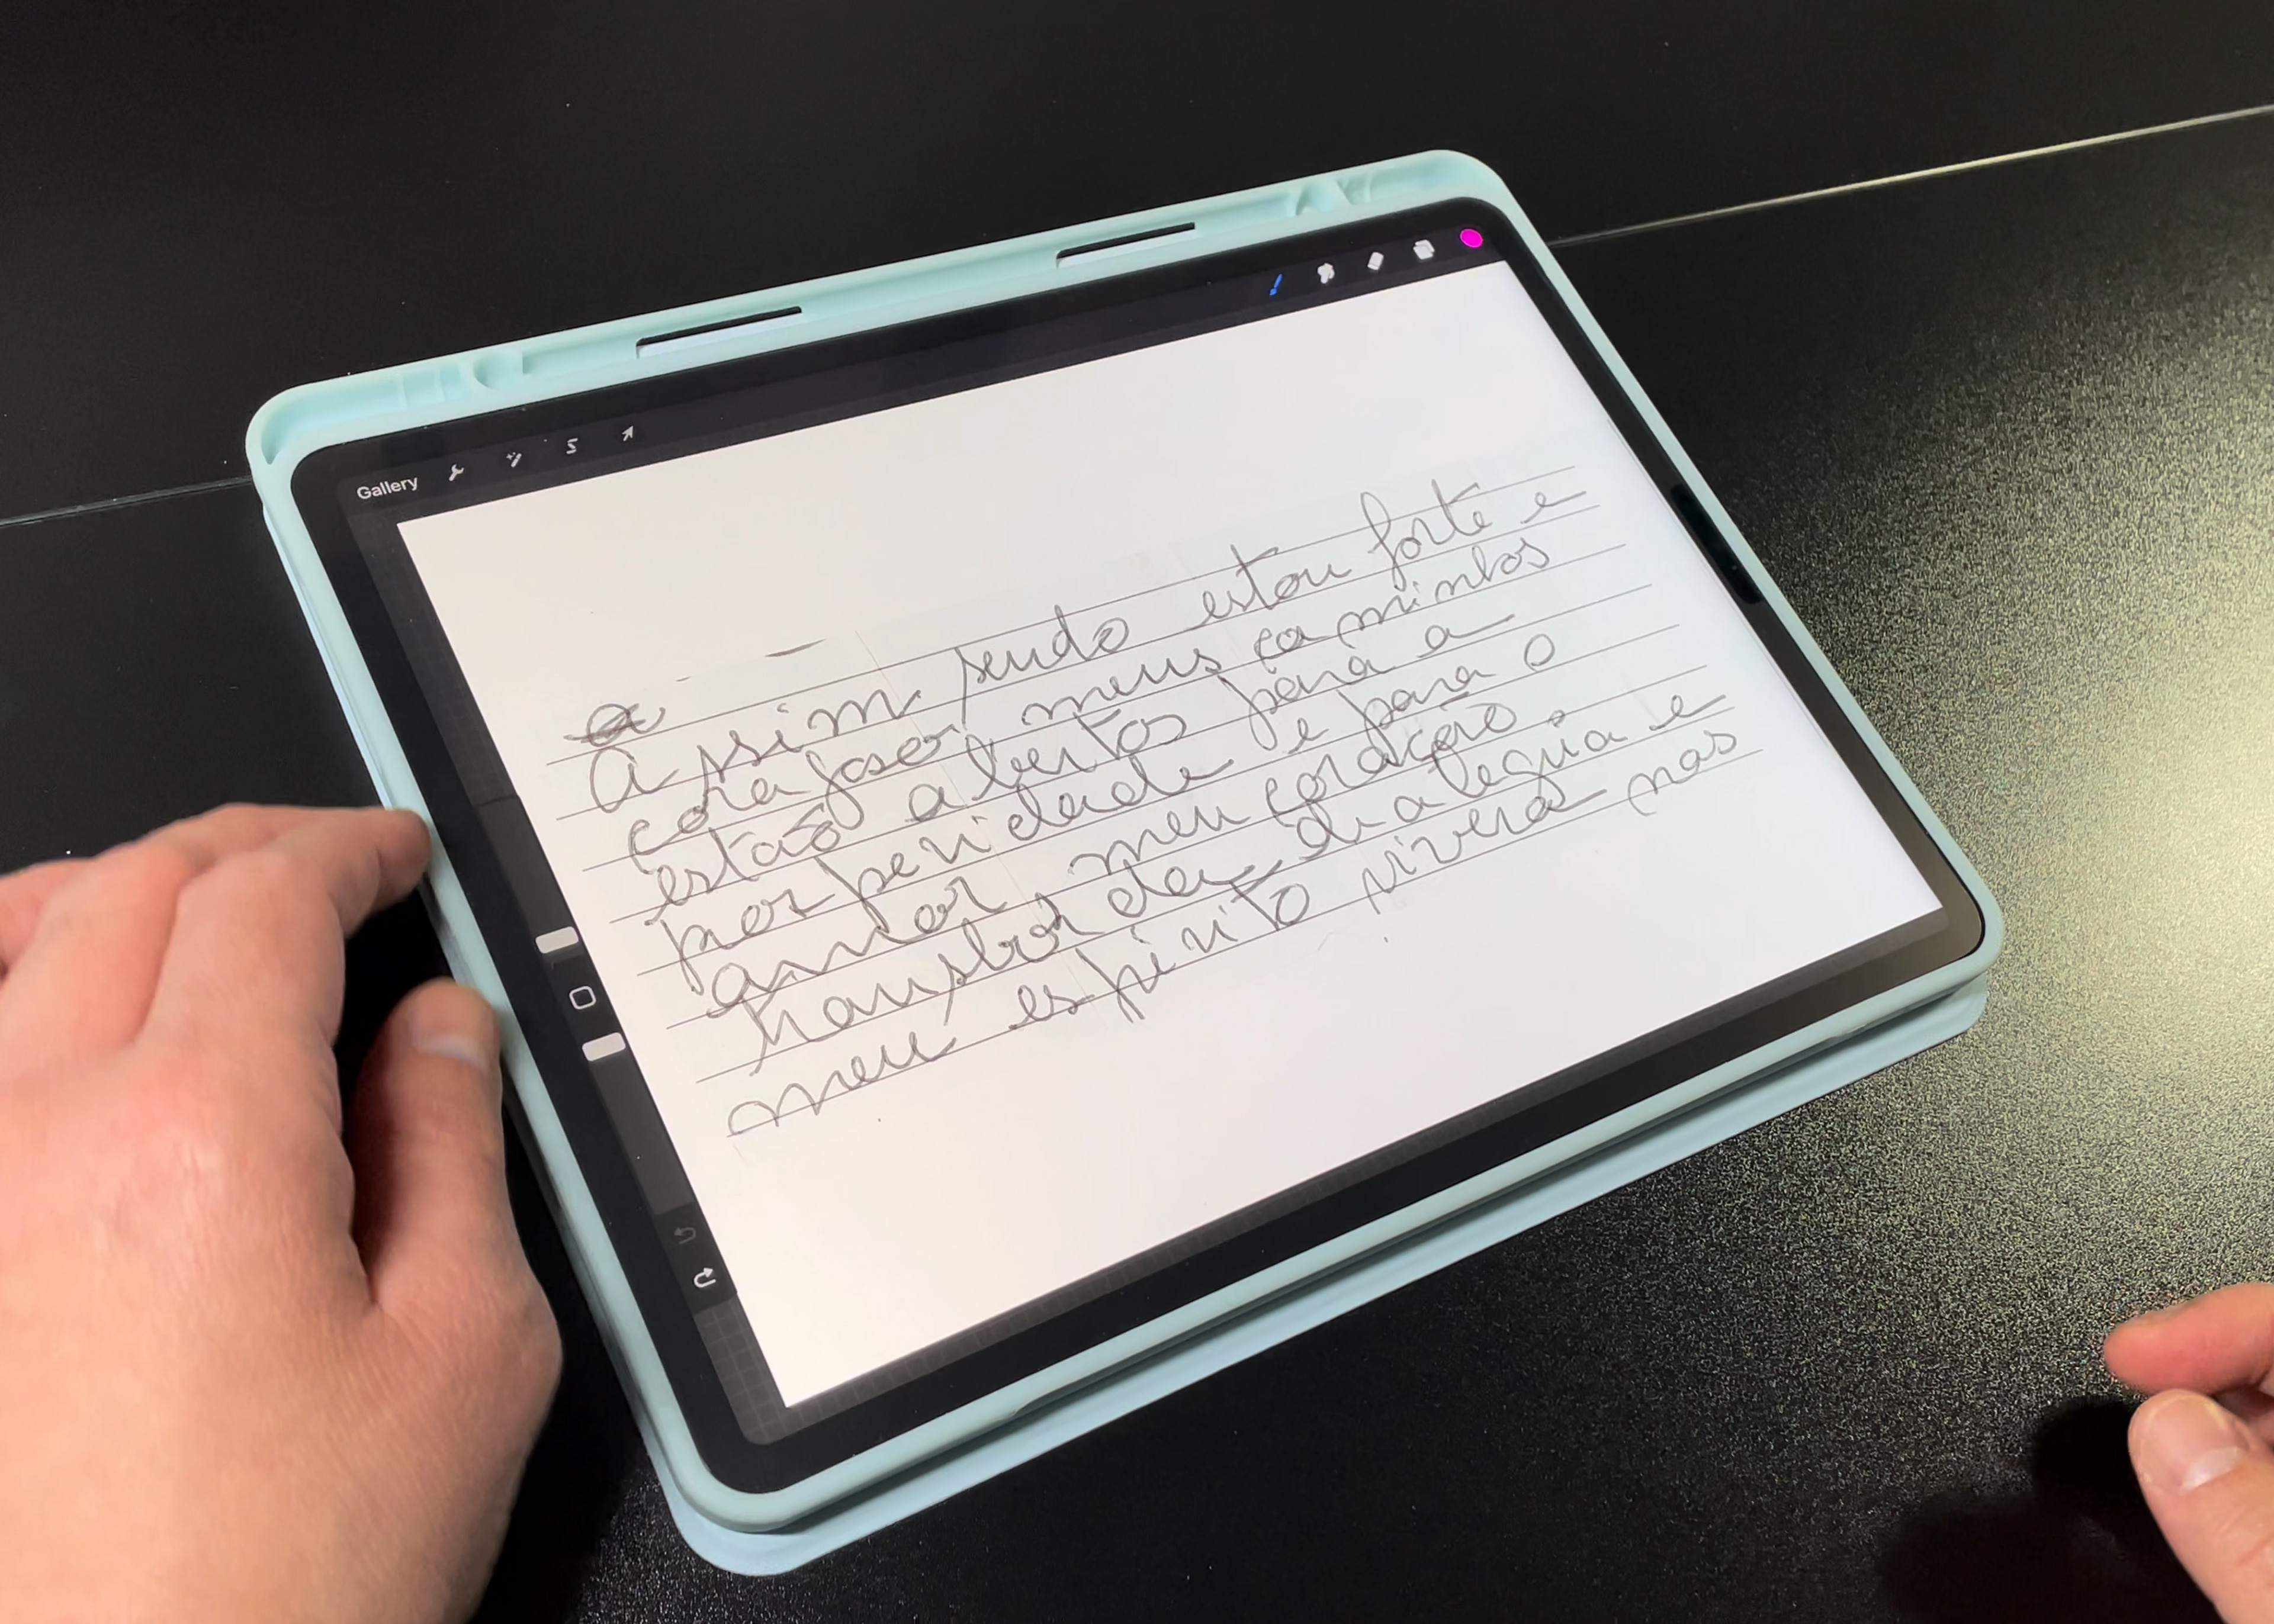 Gallery
a
Assim sendo estou forte e
corajosa meus caminhos
estão abertos para a
posperidade e para o
amor meu coração
transbor da de alegria e
meu espirito vivera nas